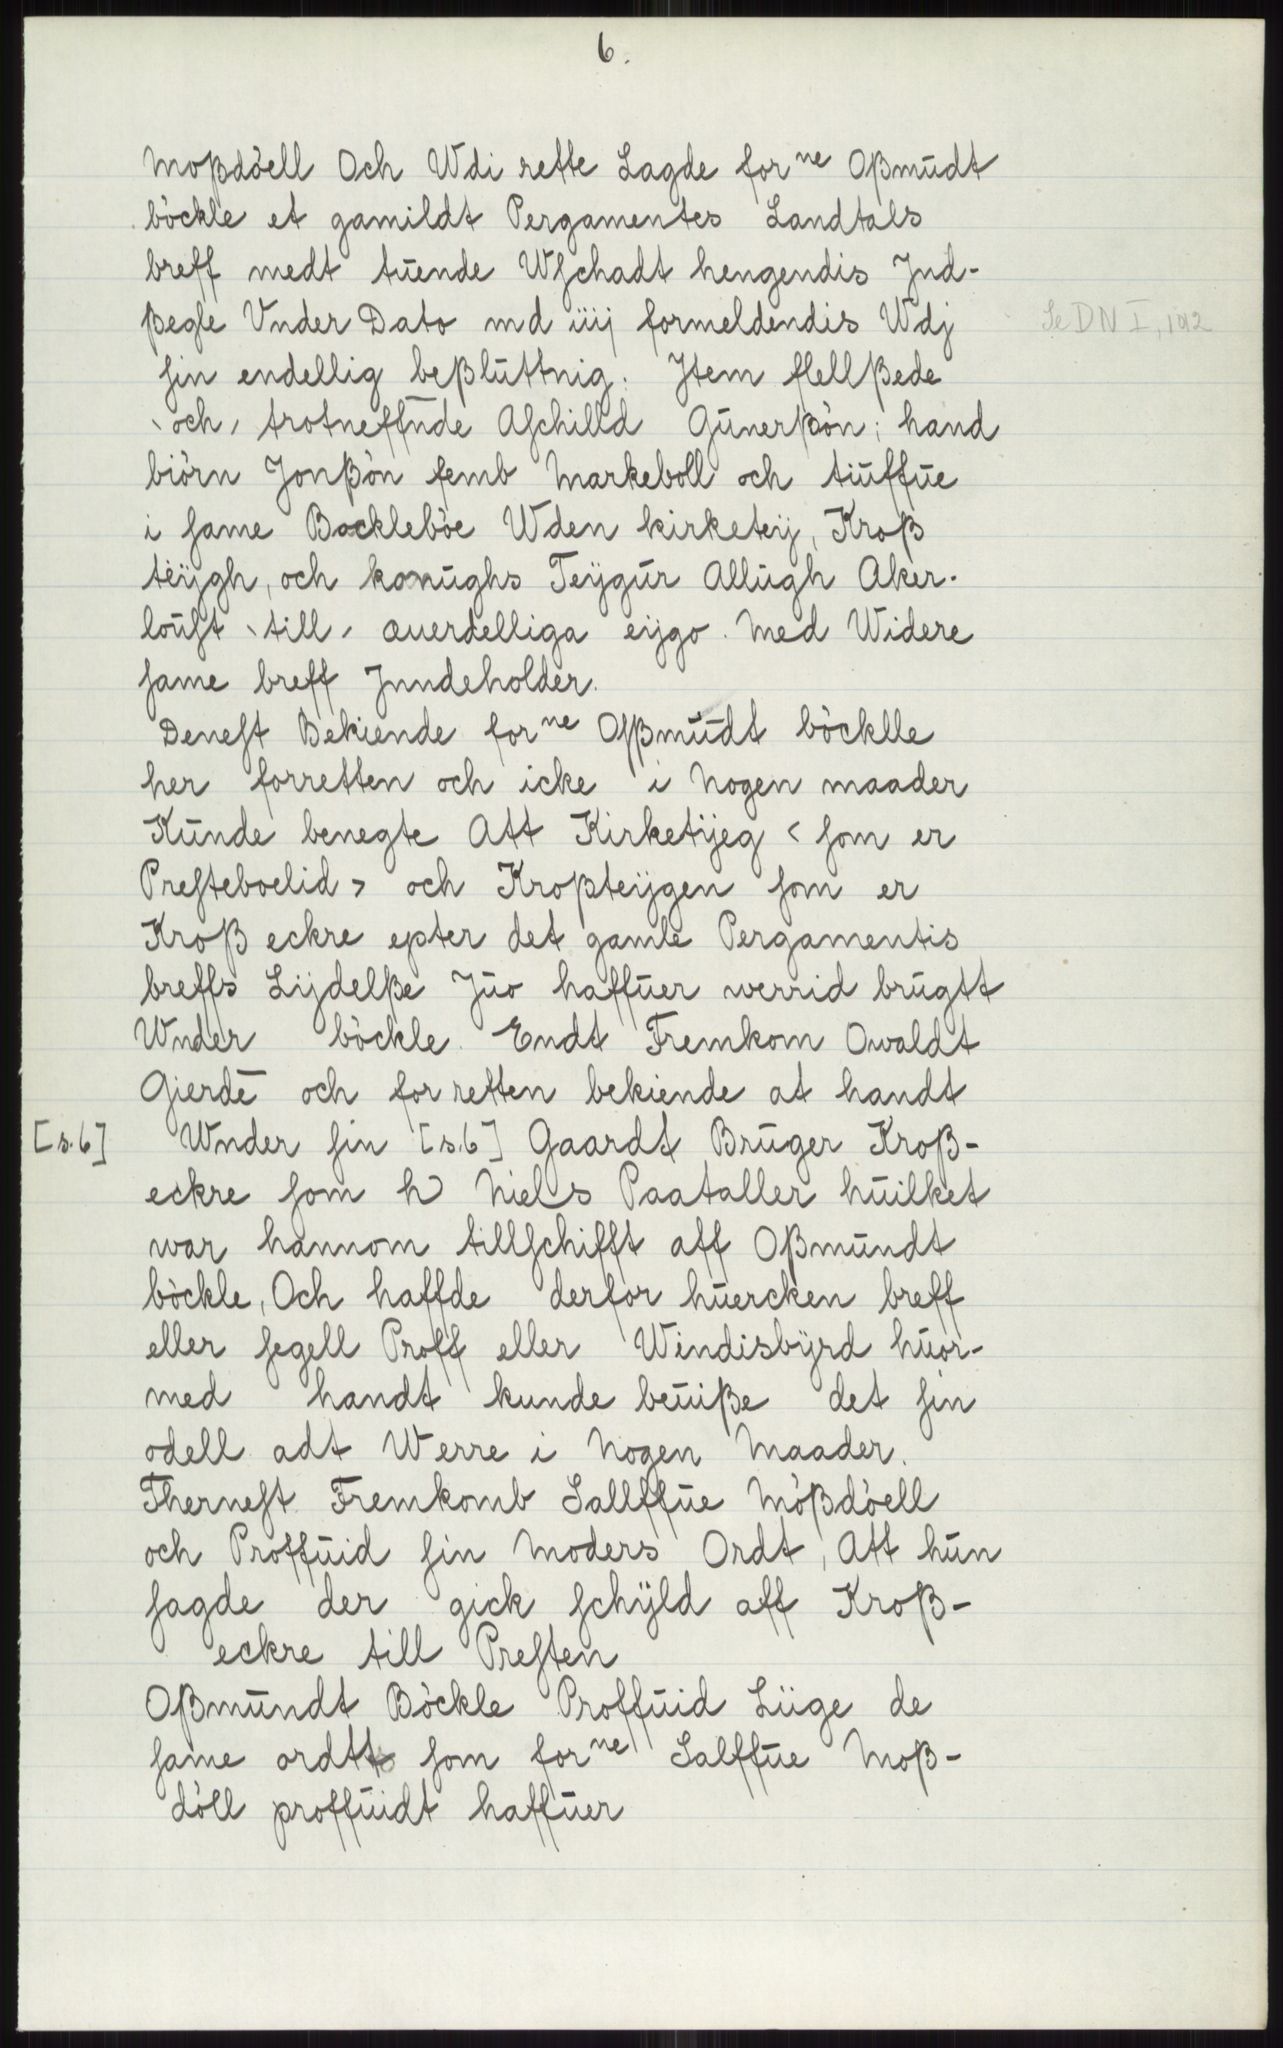 6.
Moßdöell Och Wdi rette Lagde for<sup>ne</sup> Oßmūdt
böckle et gamildt Pergamentes Landtals
breff medt tūende Wschadt hengendis Jnd-
ßegle Vnder Dato md iiij formeldendis Wdj
Se DN I, 1012
sin endellig beßlūttnig. Jtem flellßede
‵och′ trotneffnde Aschilld Gūnerßön; hand
biörn Jonßön femb Markeboll och tiūffūe
i same Bockleböe Wden kirketeÿ, Kroß
teÿgh, och konūghs Teÿgūr Allūgh Aker-
loūst ‵till′ æuerdelliga eÿgo. Med Widere
same breff Jnndeholder.
Denest Bekiende for<sup>ne</sup> Oßmūdt böcklle
her forretten och icke i Nogen maader
Kūnde benegte Att Kirketÿeg < som er
Presteboelid > och Kroßteÿgen som er
Kroß eckre epter det gamle Pergamentis
breffs Lÿdelße Jūo haffūer werrid brūgtt
Wnder böckle. Endt Fremkom Owaldt
Gierdē och for retten bekiende at handt
[s.6] Wnder sin [s.6] Gaardt Brūger Kroß-
eckre som h Niels Paataller hūilket
war hannom tillschifft aff Oßmūndt
böckle, Och haffde derfor hūercken breff
eller segell Proff eller Windisbÿrd hūor-
med handt kunde beūiße det sin
odell adt Werre i Nogen Maader.
Thernest Fremkomb Sallffūe Mößdöell
och Proffūid sin Moders Ordt, Att hūn
sagde der gick schÿld aff Kroß-
eckre till Presten
Oßmūndt Böckle Proffūid Liige de
same ordtt som for<sup>ne</sup> Salffūe Moß-
döll proffūidt haffūer